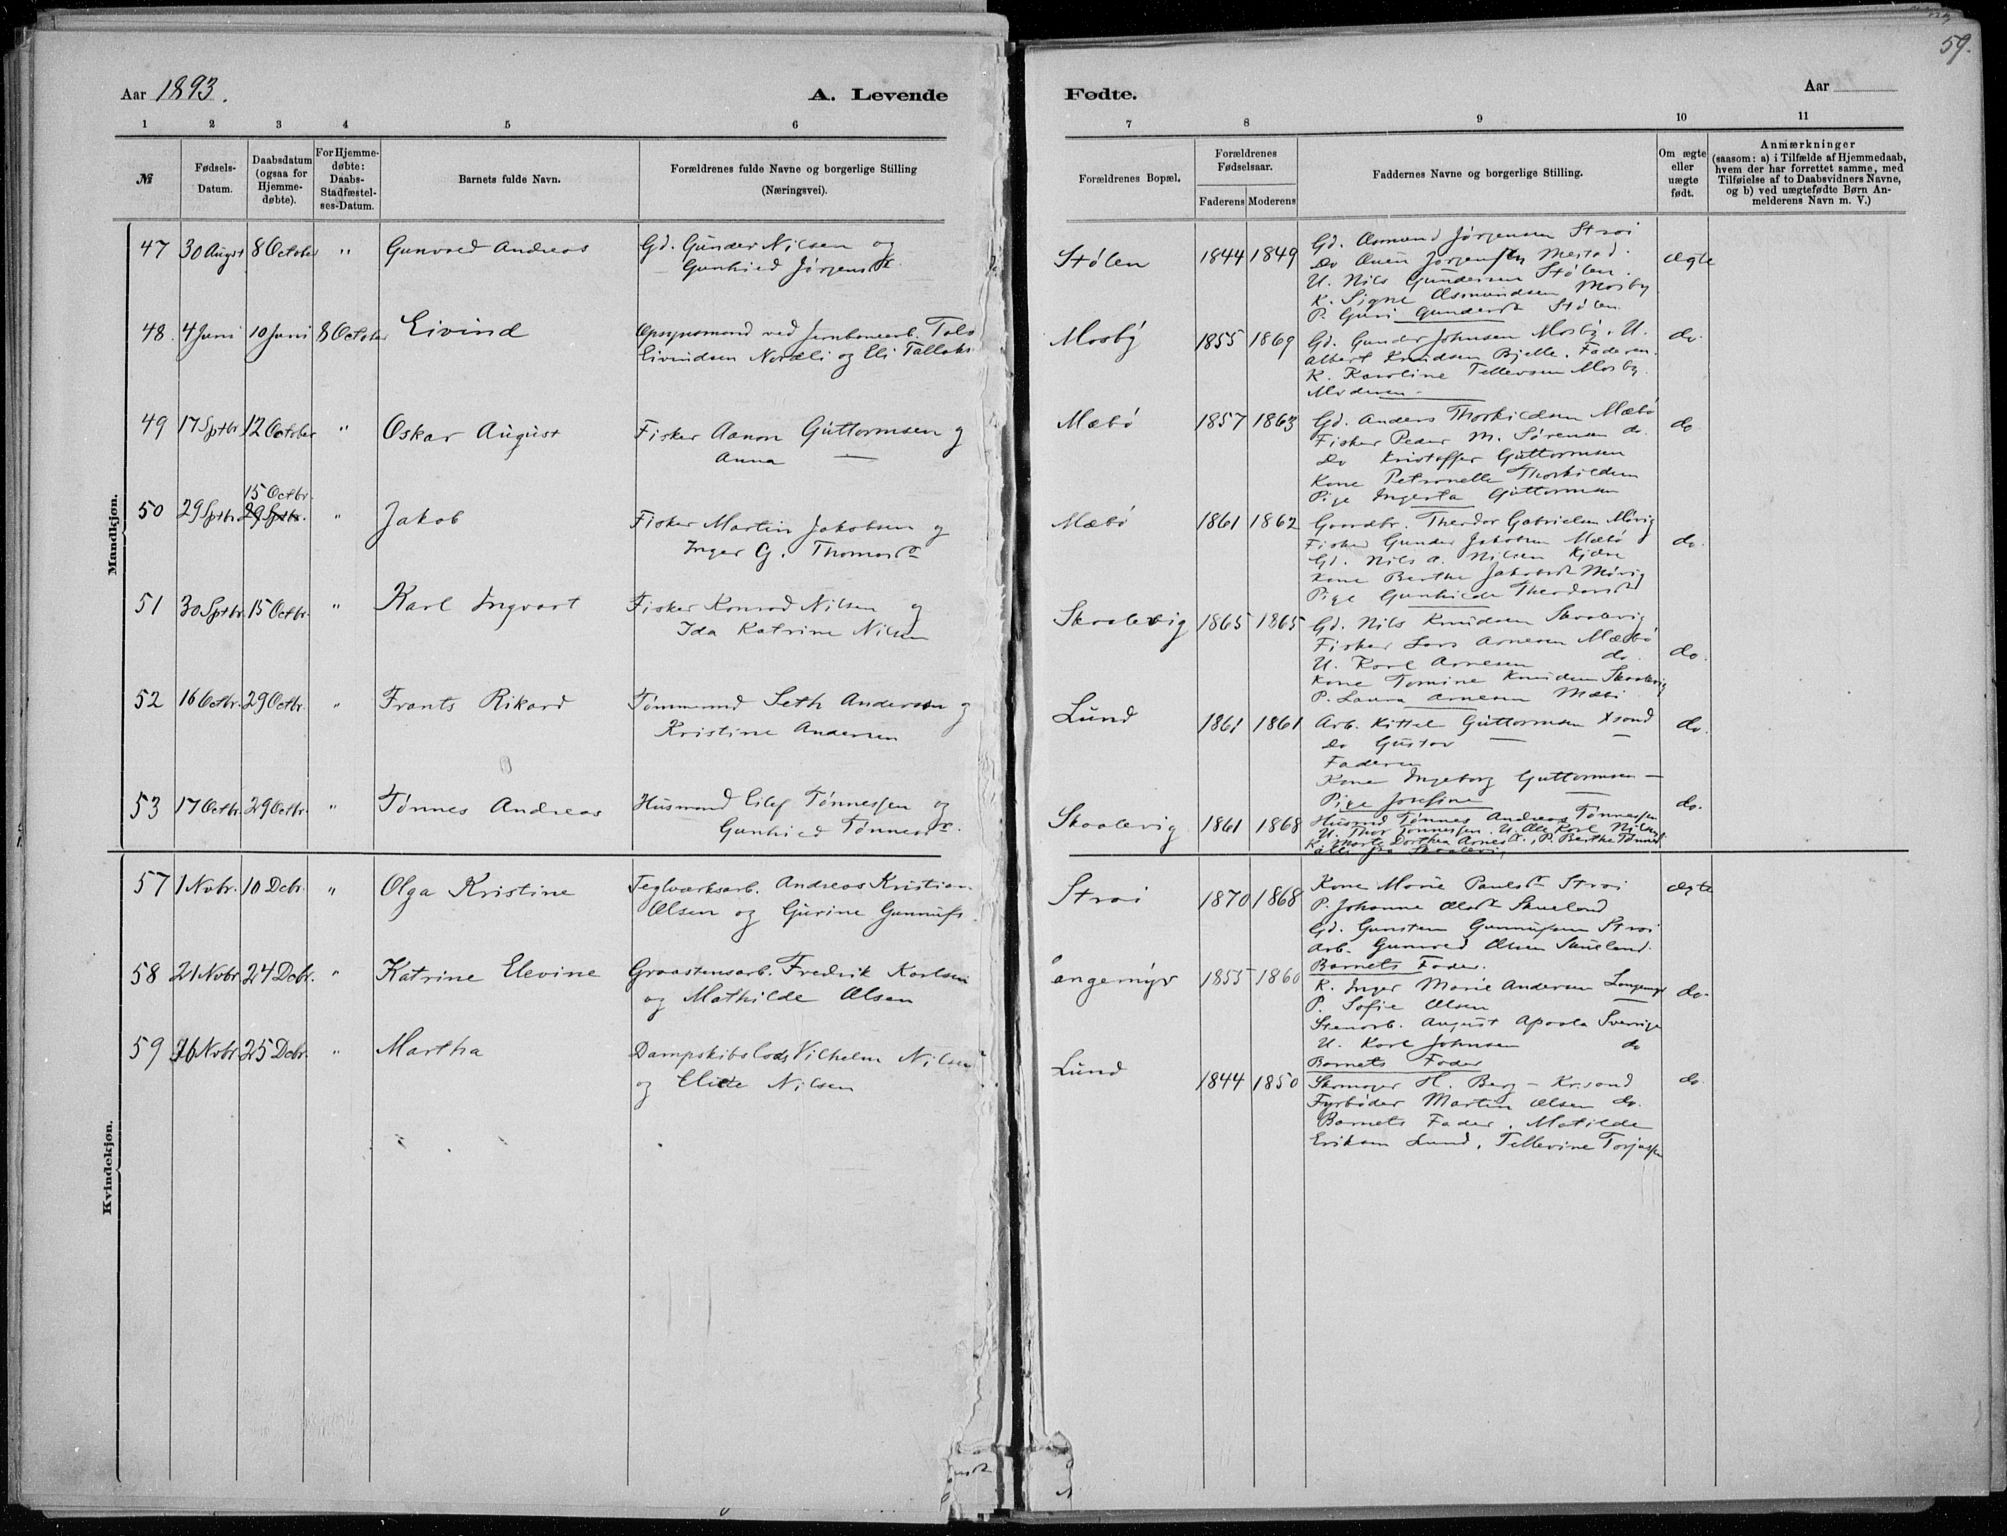 59.
Aar 1893.
A. Levende Fødte.
Aar
1 2 3 4 5 6 7 8 9 10 11
№
Fødsels-Datum.
Daabsdatum (ogsaa for Hjemmedøbte).
For Hjemmedøbte: Daabs-Stadfæstelses-Datum.
Barnets fulde Navn.
Forældrenes fulde Navne og borgerlige Stilling (Næringsvei).
Forældrenes Bopæl.
Forældrenes Fødselsaar.
Faderens Moderens
Faddernes Navne og borgerlige Stilling.
Om ægte eller uægte født.
Anmærkninger
(saasom: a) i Tilfælde af Hjemmedaab, hvem der har forrettet samme, med Tilføielse af to Daabsvidners Navne, og b) ved uægtefødte Børn Anmelderens Navn m. V.)
Mandkjøn.
47 30 Augst 8 October " Gunvald Andreas
Gd. Gunder Nilsen og
Gunhild Jørgensdt.
Stølen 1844 1849
Gd. Asmund Jørgensen Stroi
Do Ouen Jørgensen Mestad.
U. Nils Gundersen Stølen.
K. Signe Asmundsen Mosby
P. Guri Gundersdt Stølen
ægte
48. 4 Juni 10 Juni 8 October Eivind
Opsynsmand ved Jernbanearb. Tolv
Eivindsen Nordli og Eli Tallaks
Mosby 1855 1869
Gd. Gunder Johnsen Mosby. U.
Albert Knudsen Bjelle. Faderen.
K. Karoline Tellevsen Mosby
Moderen
do.
49 17 Sptbr. 12 October " Oskar August
Fisker Aanon Guttormsen og
Anna —
Mæbø 1857 1863
Gd. Anders Thorkildsen Mæbø
Fisker Peder M. Sørensen do.
Do Kristoffer Guttormsen
Kone Petronelle Thorkildsen
Pige Ingerta Guttormsen
do
50 29 Sptbr. 15 Octbr. 29 Sptbr. " Jakob
Fisker Martin Jakobsen og
Inger G. Thomasdt
Mæbø 1861 1862
Gaardbr. Theodor Gabrielsen Møvig
Fisker Gunder Jakobsen Mæbø
Gd. Nils A. Nilsen Kjære
Kone Berthe Jakobsdt Møvig
Pige Gunhilde Theodorsdt
do.
51 30 Sptbr. 15 Octbr. " Karl Ingvart
Fisker Konrad Nilsen og
Ida Katrine Nilsen
Skaalevig 1865 1865
Gd. Nils Knudsen Skaalevig
Fisker Lars Arnesen Mæbø
U. Karl Arnesen do.
Kone Tomine Knudsen Skaalevig
P. Laura Arnesen Mæbø
do.
52 16 Octbr. 29 Octbr. " Frants Rikard
Tømmermd Seth Andersen og
Kristine Andersen
Lund 1861 1861
Arb. Kittel Guttormsen Xsand
Do Gustav — —
Faderen
Kone Ingeborg Guttormsen —
Pige Josefine
do.
53 17 Octbr. 29 Octbr. " Tønnes Andreas
Husmand Eilef Tønnessen og
Gunhild Tønnesdt.
Skaalevig 1861 1868
Husmd Tønnes Andreas Tønnessen
U. Thor Tønnessen. U. Ole Karl Nilsen
K. Marte Dorthea Arnesdt., P. Berthe Tønnesd.
alle fra Skaalevig
do.
Kvindekjøn.
57 1 Nvbr. 10 Dcbr. " Olga Kristine
Teglværksarb. Andreas Kristian
Olsen og Gurine Gunnufs.
Stroi 1870 1868
Kone Marie Paulsdt Stroi
P. Johanne Olsdt Skueland
Gd. Gunsten Gunnufsen Stroi
Arb. Gunvald Olsen Skueland.
Barnets Fader.
ægte
58 21 Nvbr. 24 Dcbr. " Katrine Elevine
Graastensarb. Fredrik Karlsen
og Mathilde Olsen
angemyr 1855 1860
K. Inger Marie Andersen Langemyr
P. Sofie Olsen —
Stenarb. August Apoola Sverrige
U. Karl Johnsen do
Barnets Fader
do.
59 26 Nvbr. 25 Dcbr. " Martha
Dampskibslods Vilhelm Nilsen
og Elide Nilsen
Lund 1844 1850
Skomager H. Berg — Kr.sand
Fyrbøder Martin Olsen do.
Barnets Fader. Matilde
Eriksen Lund, Tellevine Torjussen
do.